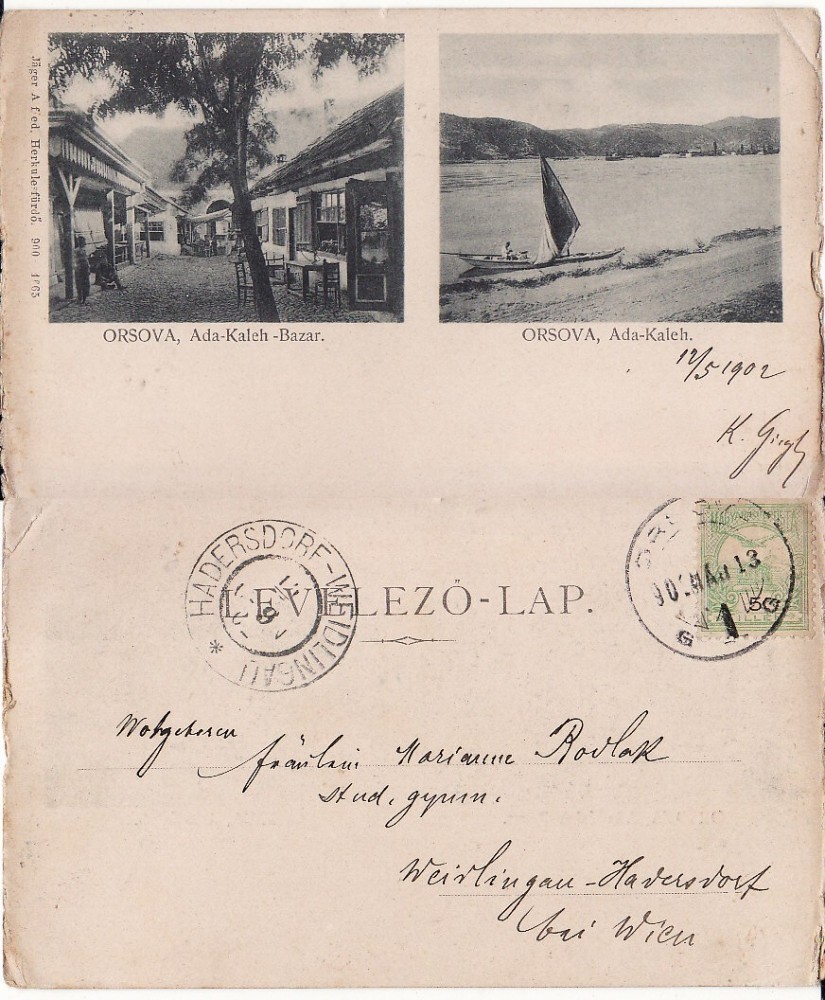 Jäger Alfred, Herkulesfürdő. 900 1865
ORSOVA, Ada-Kaleh-Bazar.
ORSOVA, Ada-Kaleh.
12/5 1902
K.
LEVELEZŐ-LAP.
HADERSDORF-WEIDLINGAU *
902 MÁJ 13
Wohgeboren
Fräulein Marianne Rodlak
stud. gymn.
Weidlingau-Hadersdorf
bei Wien